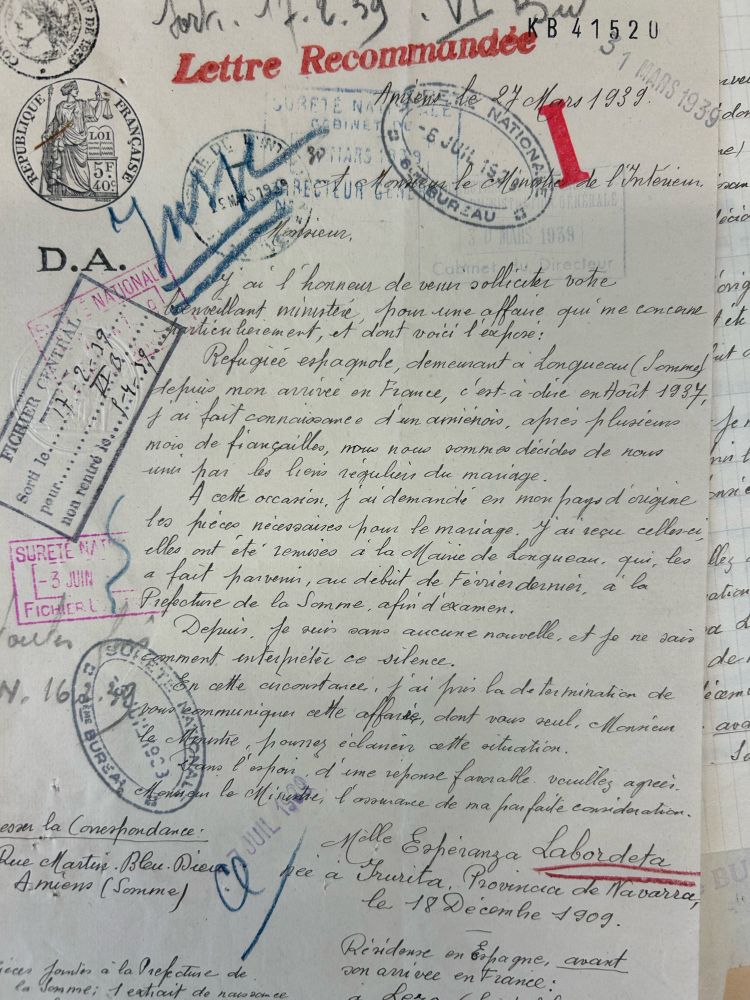 Sorti 17.2.39. VI
KB 41520
Lettre Recommandée
31 MARS 1939
Amiens le 27 Mars 1939.
RÉPUBLIQUE FRANÇAISE
LOI
5F
40c
SURETÉ NATIONALE
CABINET DU
30 MARS 1939
DIRECTEUR GÉNÉRAL
SURETÉ NATIONALE
-6 JUIL 1939
6ème BUREAU
I
à Monsieur le Ministre de l'Intérieur.
30 MARS 1939
Cabinet du Directeur
Monsieur.
D.A.
J'ai l'honneur de venir solliciter votre
bienveillant ministère, pour une affaire qui me concerne
particulièrement, et dont voici l'exposé:
Réfugiée espagnole, demeurant à Longueau (Somme)
depuis mon arrivée en France, c'est-à-dire en Août 1937,
j'ai fait connaissance d'un amiénois, après plusieurs
mois de fiançailles, nous nous sommes décidés de nous
unir par les liens réguliers du mariage.
A cette occasion, j'ai demandé en mon pays d'origine
les pièces nécessaires pour le mariage. J'ai reçu celles-ci,
elles ont été remises à la Mairie de Longueau, qui, les
a fait parvenir, au début de Février dernier, à la
Préfecture de la Somme, afin d'examen.
Depuis, je suis sans aucune nouvelle, et je ne sais
comment interpréter ce silence.
En cette circonstance, j'ai pris la détermination de
vous communiquer cette affaire, dont vous seul, Monsieur
le Ministre, pourrez éclaircir cette situation.
Dans l'espoir, d'une réponse favorable, veuillez agréer
Monsieur le Ministre, l'assurance de ma parfaite considération.
SURETÉ NATIONAL
FICHIER CENTRAL
Sorti le 17-2-39
pour VI B
non rentré le 1-4-39
SURETÉ NAT
-3 JUIN
FICHIER
N. 16
SURETÉ NATIONALE
6ème BUREAU
7 JUIL 1939
esser la Correspondance:
Rue Martin-Bleu-Dieu
Amiens (Somme)
Melle Espéranza Labordeta
née à Irurita, Provincia de Navarra,
le 18 Décembre 1909.
Résidense en Espagne, avant
son arrivée en France:
à Lezo
ièces jointes à la Préfecture de
la Somme: 1 extrait de naissance